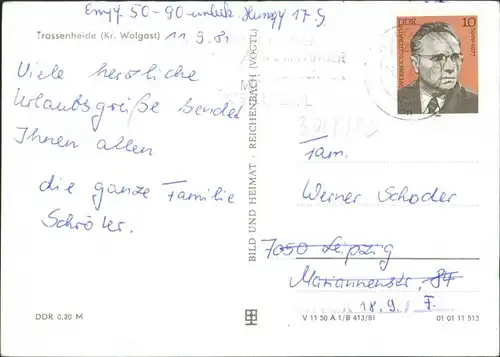 Empf. 50-90 unbek.
Trassenheide (Kr. Wolgast) 11.9.81
Viele herzliche
Urlaubsgrüße sendet
Ihnen allen
die ganze Familie
Schröter.
BILD UND HEIMAT · REICHENBACH (VOGTL)
DDR 10
Fam.
Werner Schoder
7050 Leipzig
Mariannenstr. 84
18.9. F.
DDR 0,20 M
V 11 50 A 1/B 413/81 01 01 11 513